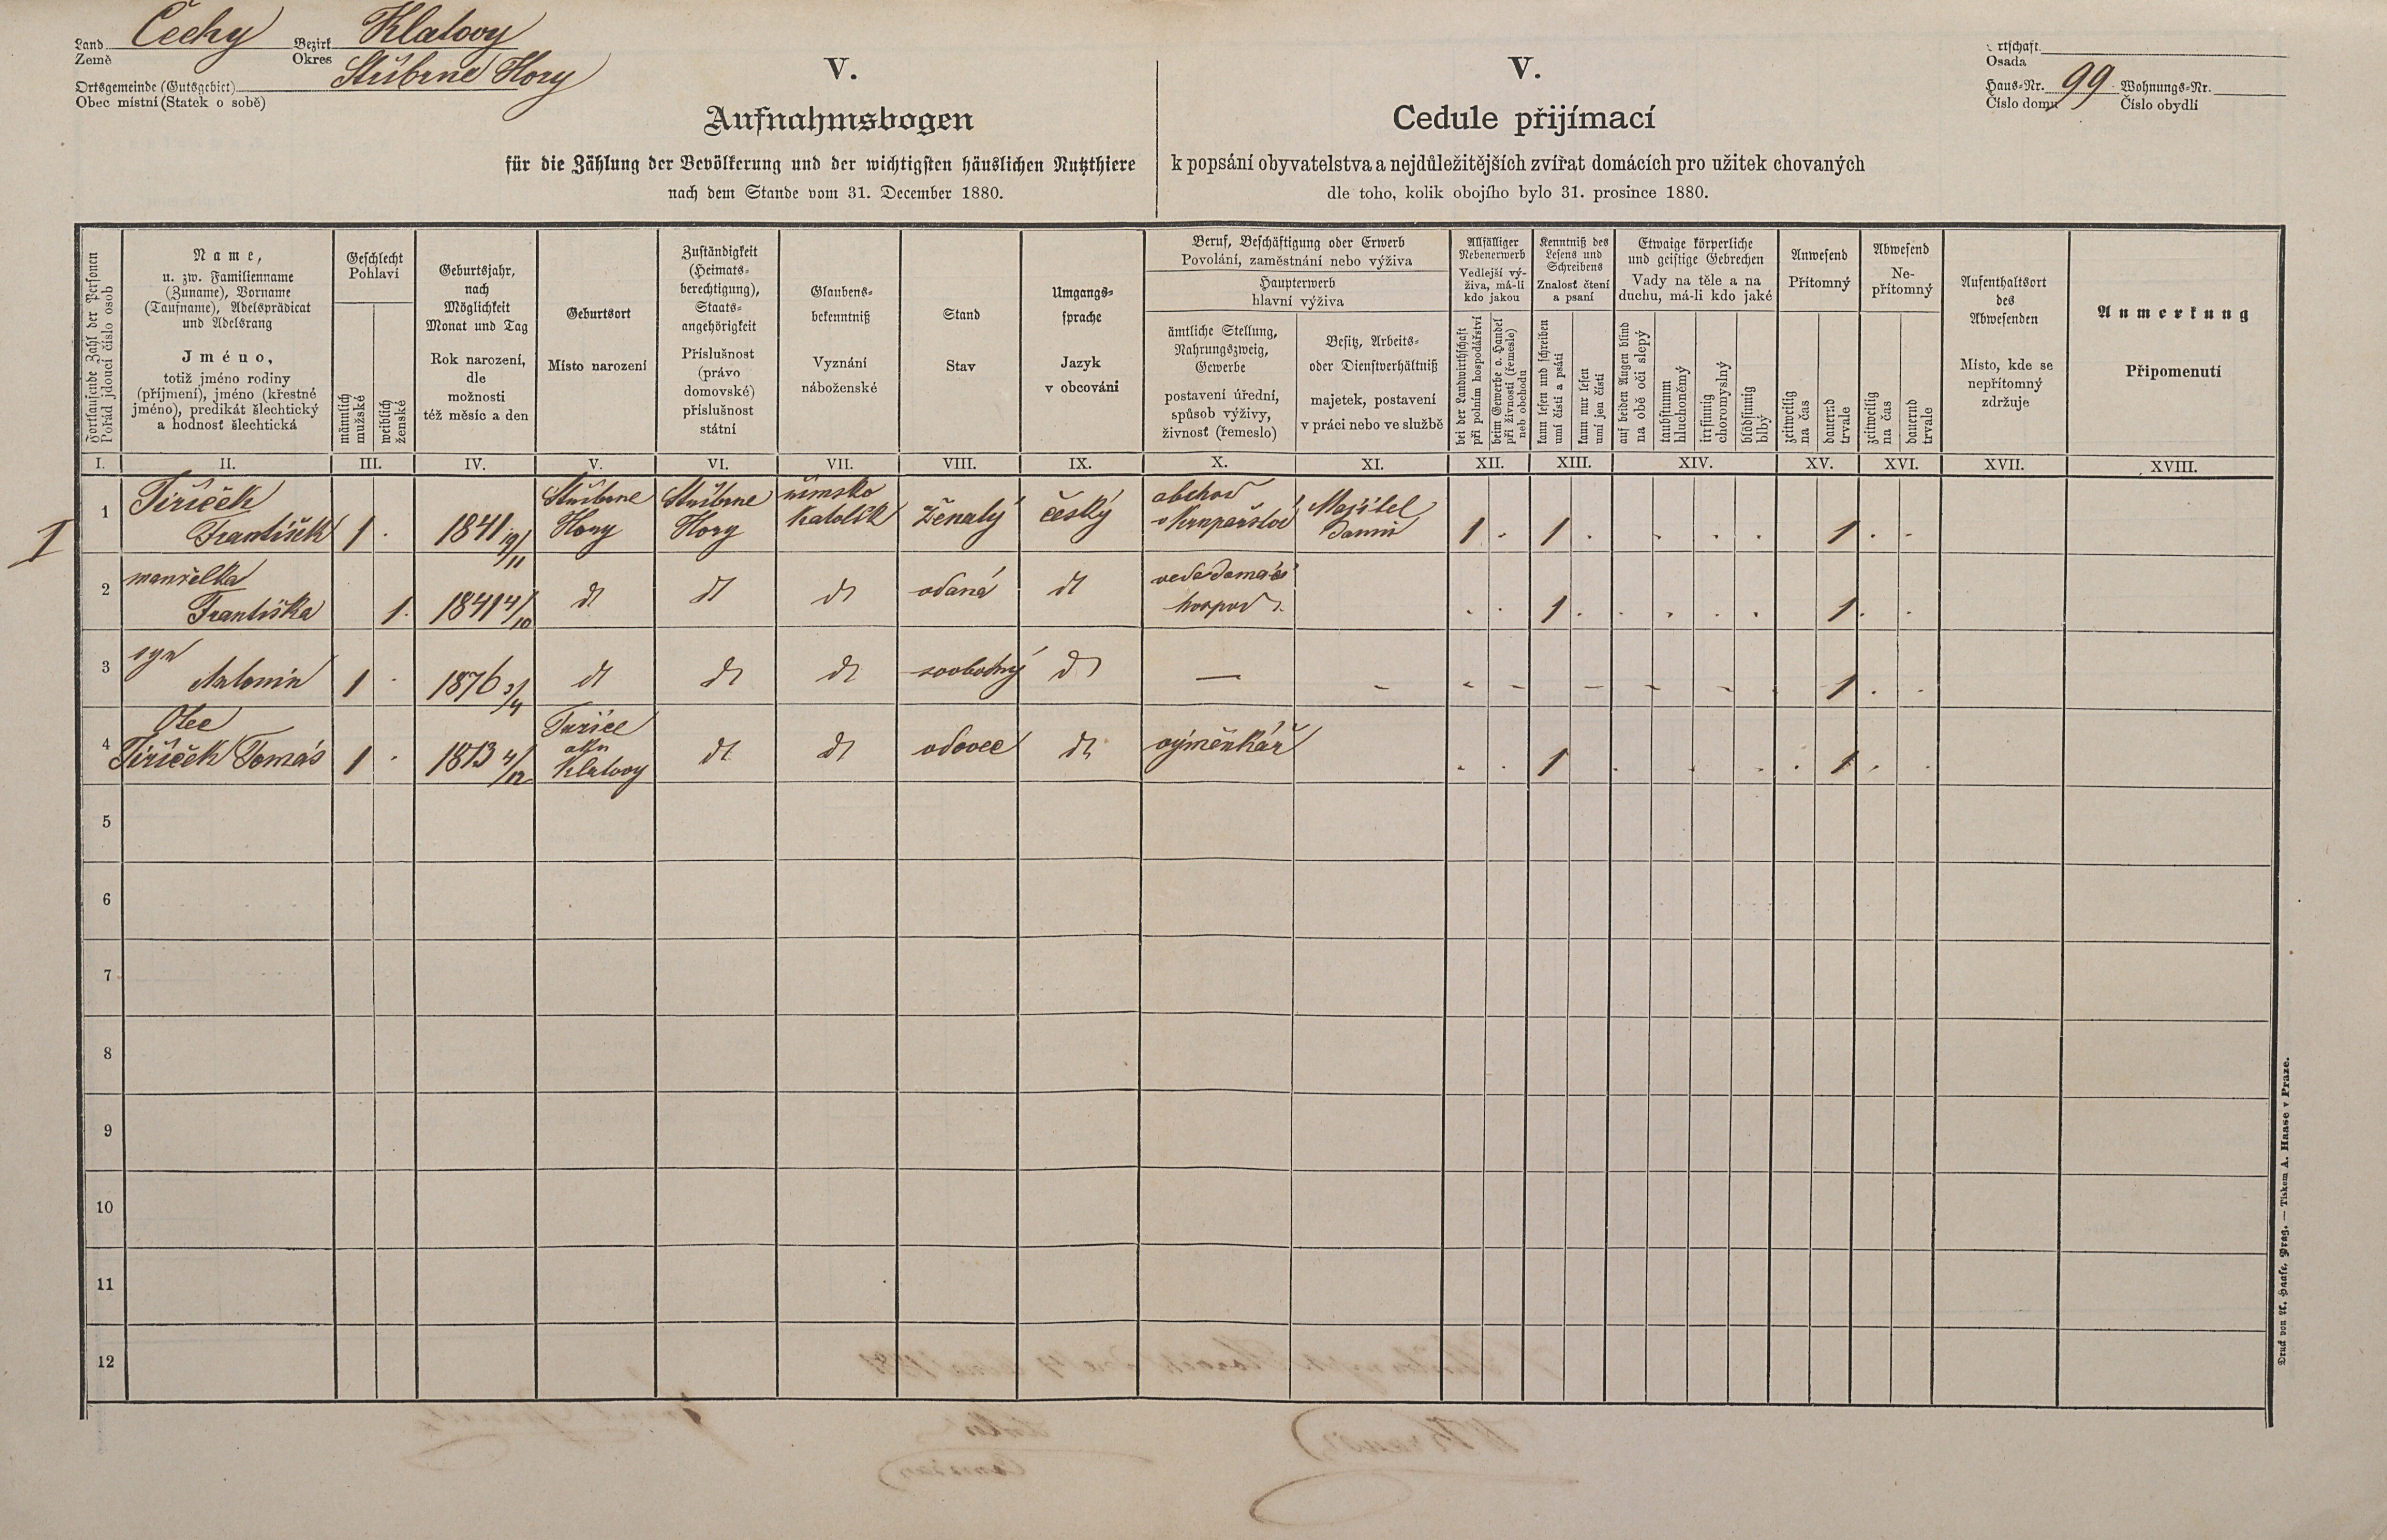 Land Čechy Bezirk Klatovy
Země Okres
Ortsgemeinde (Gutsgebiet) Stříbrne Hory
Obec místní (Statek o sobě)
Ortschaft
Osada
Haus-Nr. 99 Wohnungs-Nr.
Číslo domu Číslo obydlí
V.
Aufnahmsbogen
für die Zählung der Bevölkerung und der wichtigsten häuslichen Nutzthiere
nach dem Stande vom 31. December 1880.
V.
Cedule přijímací
k popsání obyvatelstva a nejdůležitějších zvířat domácích pro užitek chovaných
dle toho, kolik obojího bylo 31. prosince 1880.
Fortlaufende Zahl der Personen
Pořád jdoucí číslo osob
Name,
u. zw. Familienname
(Zuname), Vorname
(Taufname), Adelsprädicat
und Adelsrang
Jméno,
totiž jméno rodiny
(příjmení), jméno (křestné
jméno), predikát šlechtický
a hodnosť šlechtická
Geschlecht
Pohlaví
männlich
mužské
weiblich
ženské
Geburtsjahr,
nach
Möglichkeit
Monat und Tag
Rok narození,
dle
možnosti
též měsíc a den
Geburtsort
Místo narození
Zuständigkeit
(Heimats-
berechtigung),
Staats-
angehörigkeit
Příslušnost
(právo
domovské)
příslušnost
státní
Glaubens-
bekenntniß
Vyznání
náboženské
Stand
Stav
Umgangs-
sprache
Jazyk
v obcování
Beruf, Beschäftigung oder Erwerb
Povolání, zaměstnání nebo výživa
Haupterwerb
hlavní výživa
ämtliche Stellung,
Nahrungszweig,
Gewerbe
postavení úřední,
spůsob výživy,
živnosť (řemeslo)
Besitz, Arbeits-
oder Dienstverhältniß
majetek, postavení
v práci nebo ve službě
Allfälliger
Nebenerwerb
Vedlejší vý-
živa, má-li
kdo jakou
bei der Landwirthschaft
při polním hospodářství
beim Gewerbe o. Handel
při živnosti (řemesle)
neb obchodu
Kenntniß des
Lesens und
Schreibens
Znalosť čtení
a psaní
kann lesen und schreiben
umí čísti a psáti
kann nur lesen
umí jen čísti
Etwaige körperliche
und geistige Gebrechen
Vady na těle a na
duchu, má-li kdo jaké
auf beiden Augen blind
na obě oči slepý
taubstumm
hluchoněmý
irrsinnig
choromyslný
blödsinnig
blbý
Anwesend
Přítomný
zeitweilig
na čas
dauernd
trvale
Abwesend
Ne-
přítomný
zeitweilig
na čas
dauernd
trvale
Aufenthaltsort
des
Abwesenden
Místo, kde se
nepřítomný
zdržuje
Anmerkung
Připomenutí
I. II. III. IV. V. VI. VII. VIII. IX. X. XI. XII. XIII. XIV. XV. XVI. XVII. XVIII.
1 Jiříček Stříbrne Stříbrne římsko obchod Majitel
František 1 1841 19/11 Hory Hory katolík ženatý český v krupařství Domu 1 1 1
1
2 manželka vede domácí
Františka 1 1841 4/10 dt dt dt odaná dt hospod. 1 1
3 syn
Antonín 1 1876 3/4 dt dt dt svobodný dt — 1
4 Otec Tuřice
Jiříček Tomáš 1 1813 4/12 okr. Klatovy dt dt vdovec dt výměnkář 1 1
5
6
7
8
9
10
11
12
Druck von A. Haase, Prag. — Tiskem A. Haase v Praze.